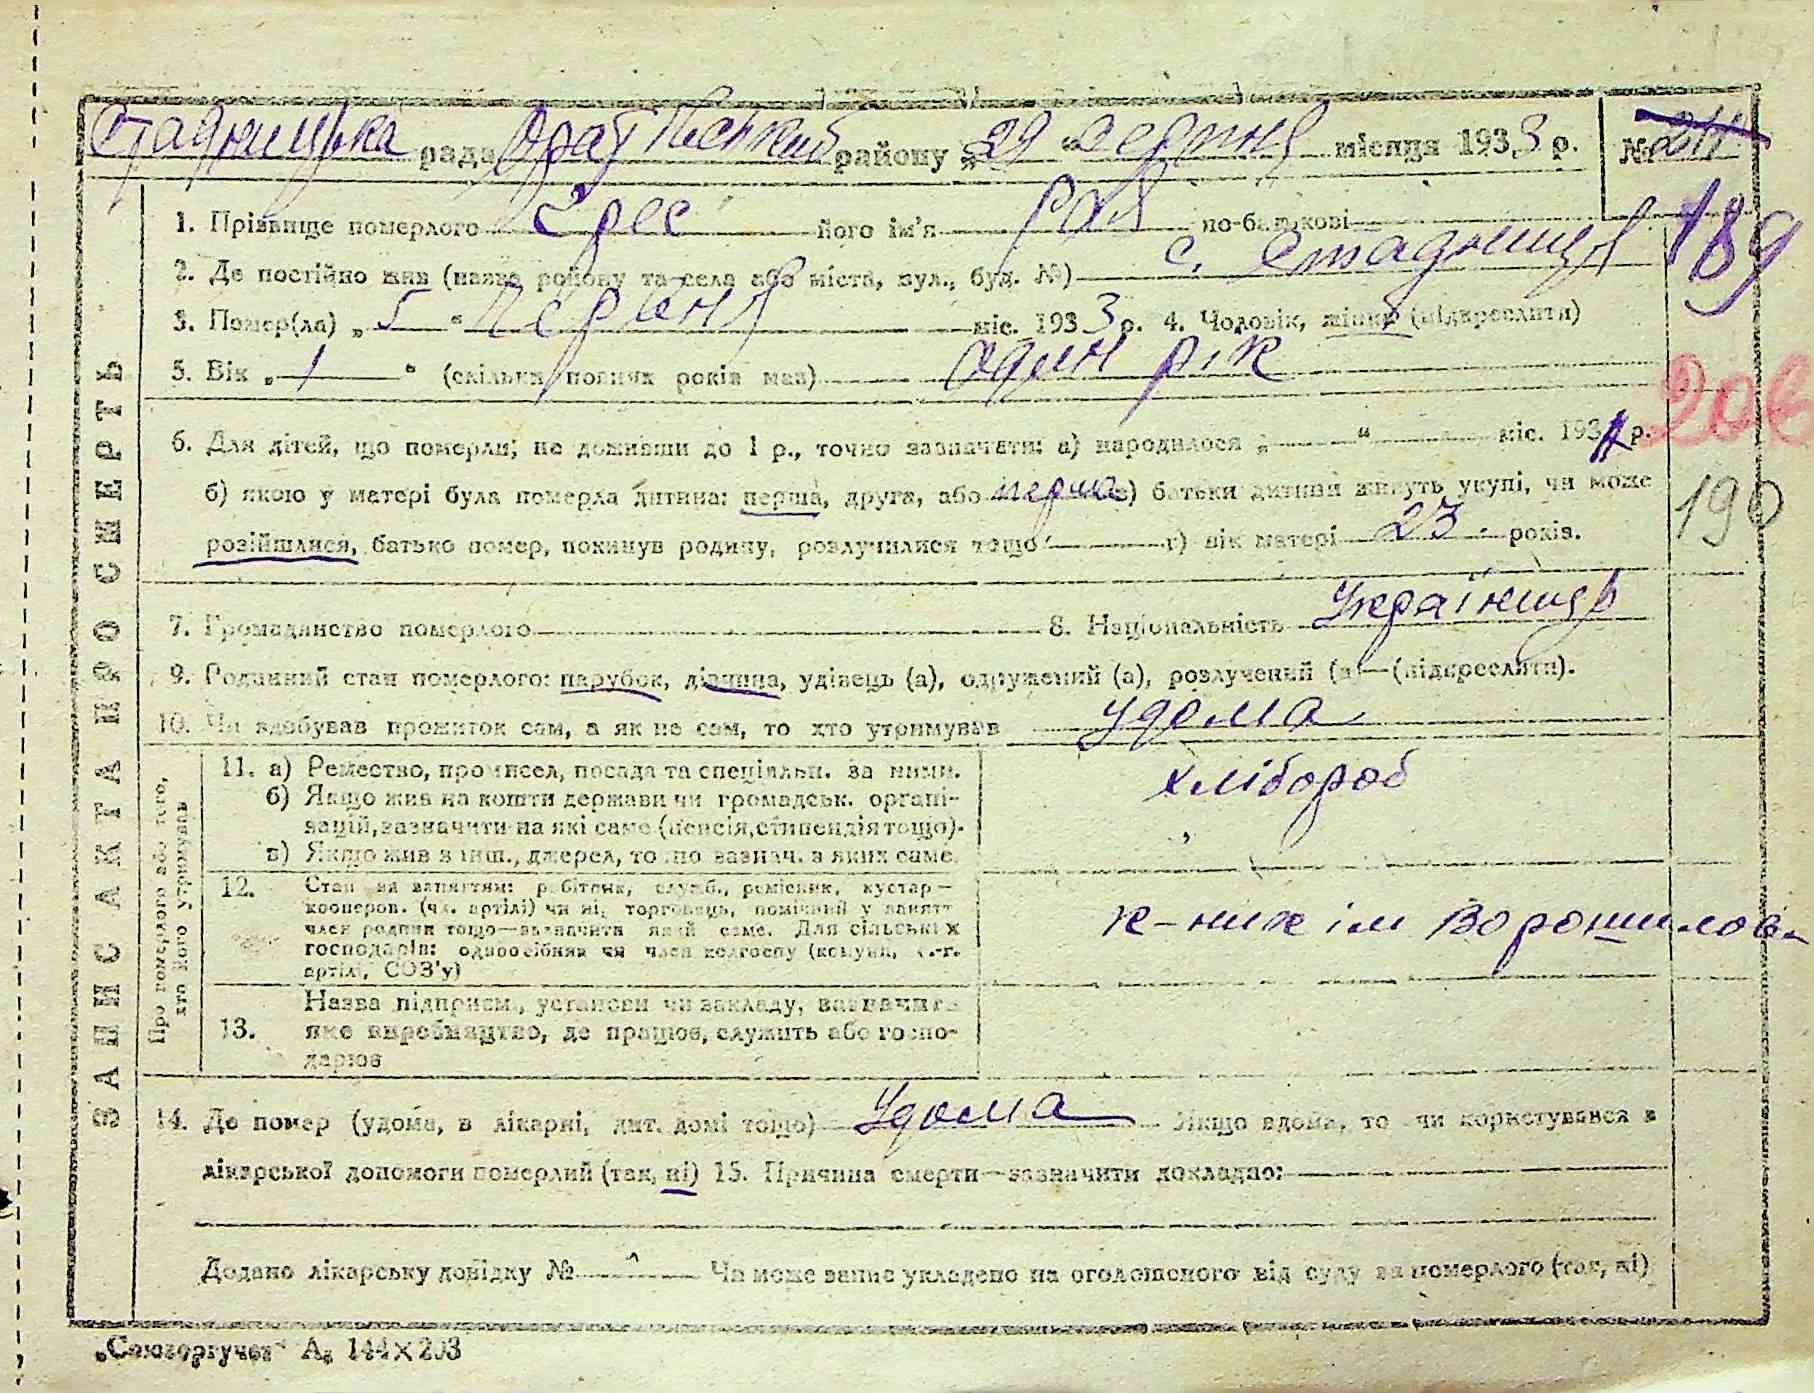 Стадницька рада Оратівський району „29“ серпня місяця 1933 р. № 211
189
1. Прізвище померлого Ерес його ім'я Рая по-батькові
2. Де постійно жив (назва району та села або міста, вул., буд. №) с. Стадниця
3. Помер(ла) „5“ червня міс. 1933 р. 4. Чоловік, жінка (підкреслити)
5. Вік „1“ (скільки повних років мав) один рік
206
6. Для дітей, що померли, не доживши до 1 р., точно зазначати: а) народилося „ “ міс. 193 р.
б) якою у матері була померла дитина: перша, друга, або перша в) батьки дитини живуть укупі, чи може
190
розійшлися, батько помер, покинув родину, розлучилися тощо г) вік матері 23 років.
7. Громадянство померлого 8. Національність Українця
9. Родинний стан померлого: парубок, дівчина, удівець (а), одружений (а), розлучений (а)—(підкреслити).
10. Чи здобував прожиток сам, а як не сам, то хто утримував удома
11. а) Ремество, промисел, посада та спеціяльн. за ними. хлібороб
б) Якщо жив на кошти держави чи громадськ. органі-
зацій, зазначити на які саме (пенсія, стипендія тощо). "
в) Якщо жив з інш., джерел, то зазнач. з яких саме.
12. Стан за заняттям: робітник, служб., ремісник, кустар—
кооперов. (чл. артілі) чи ні, торговець, помічний у занятт
член родини тощо—зазначити який саме. Для сільських
господарів: одноосібник чи член колгоспу (комуни, с.-г.
артілі, СОЗ'у)
к-ник ім Ворошилова
13. Назва підприєм., установи чи закладу, зазначити
яке виробництво, де працює, служить або госпо-
дарює
14. Де помер (удома, в лікарні, дит. домі тощо) Удома Якщо вдома, то чи користувався з
лікарської допомоги померлий (так, ні) 15. Причина смерти—зазначити докладно:
Додано лікарську довідку № Чи може запис укладено на оголошеного від суду за померлого (так, ні)
ЗАПИС АКТА ПРО СМЕРТЬ
Про померлого або того,
хто його утримував
„Союзоргучет“ А₅ 144×203